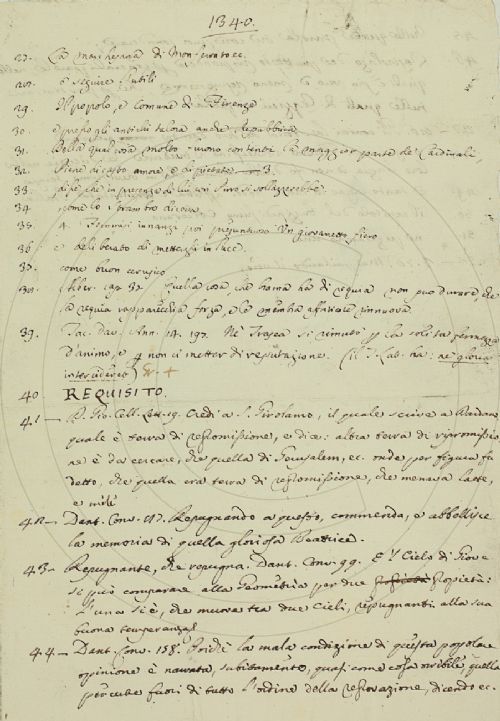 1340.
27. La marchesana di Monferrato ec.
28. e seguire l'utili
29. Il popolo, e comune di Firenze
30. e presso gli antichi talora anche Repubblica
31. Della qual cosa molto vivono contenti la maggior parte de' Cardinali,
32. Piene di casto amore, e di pietate
33. dipe, che in presenza di lui con Sirro si sollazzerebbe.
34. come lo Spirito
35. 4. Fiammi innanzi poi presuntuoso Un giovanetto fiero
36. e deliberato di mettersi in pace.
37. come buon cerusico
38. Albr. cap. 37. Quella cosa, che homo ha di requia non può durare che
la requia rapparecchia forza, e le membra affaticate rinnuova.
39. Tac. Dav. Ann. 14. 197. Nè Trasea si rimutò p la solita fermezza
d'animo, e p non ci metter di reputazione. (il T. Lat. ha: ne gloria
intercideret)
40 REQUISITO.
41 D. Gio. Cell. Lett. 19. Credi a S. Girolamo, il quale scrive a Dardano
quale è terra di repromissione, e dice: altra terra di ripromissio
ne è da cercare, che quella di Gerusalem, ec. onde per figura fu
detto, che quella era terra di repromissione, che menava latte,
e mele
42 Dant. Conv. 97. Repugnando a questo, commenda, e abbellisce
la memoria di quella gloriosa Beatrice.
43 Repugnante, che repugna. Dant. Conv. 99. E 'l Cielo di Giove
si può comparare alla Geometria per due Propietà:
l'una si è, che muove tra due Cieli, repugnanti alla sua
buona temperanza
44 Dant. Conv. 158. Poichè la mala condizione di questa popolare
opinione è narrata, subitamente, quasi come cosa orribile, quella
percuote fuori di tutto l'ordine della reprovazione, dicendo ec.